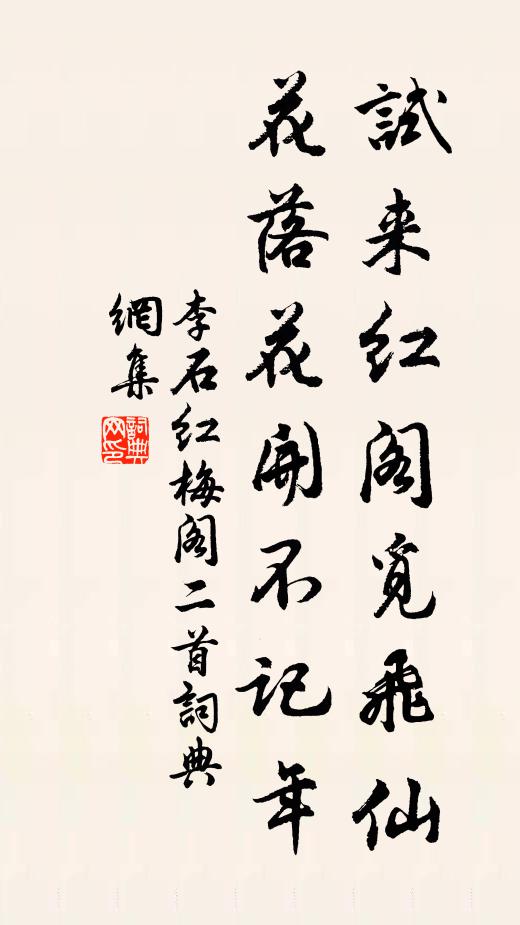 試来红阁覓飛仙
花落花開不记年
李石红梅阁二首詞典
網集
詞典
网印